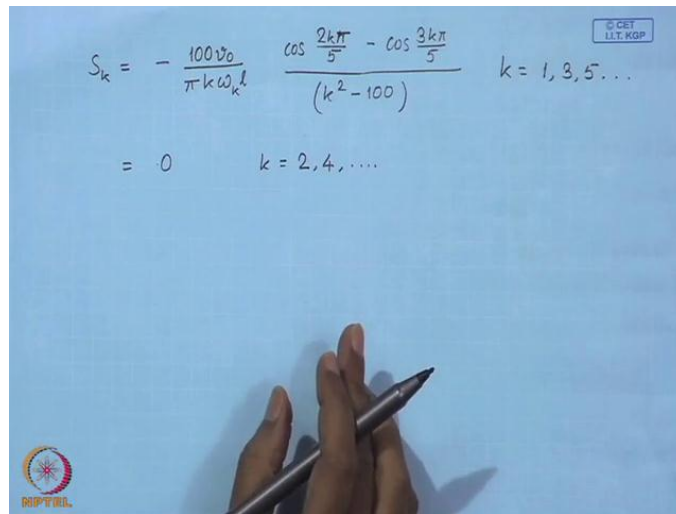 © CET
I.I.T. KGP
S_k = - \frac{100 v_0}{\pi k \omega_k l} \frac{\cos \frac{2k\pi}{5} - \cos \frac{3k\pi}{5}}{(k^2 - 100)} k = 1, 3, 5 ...
= 0 k = 2, 4, ....
NPTEL